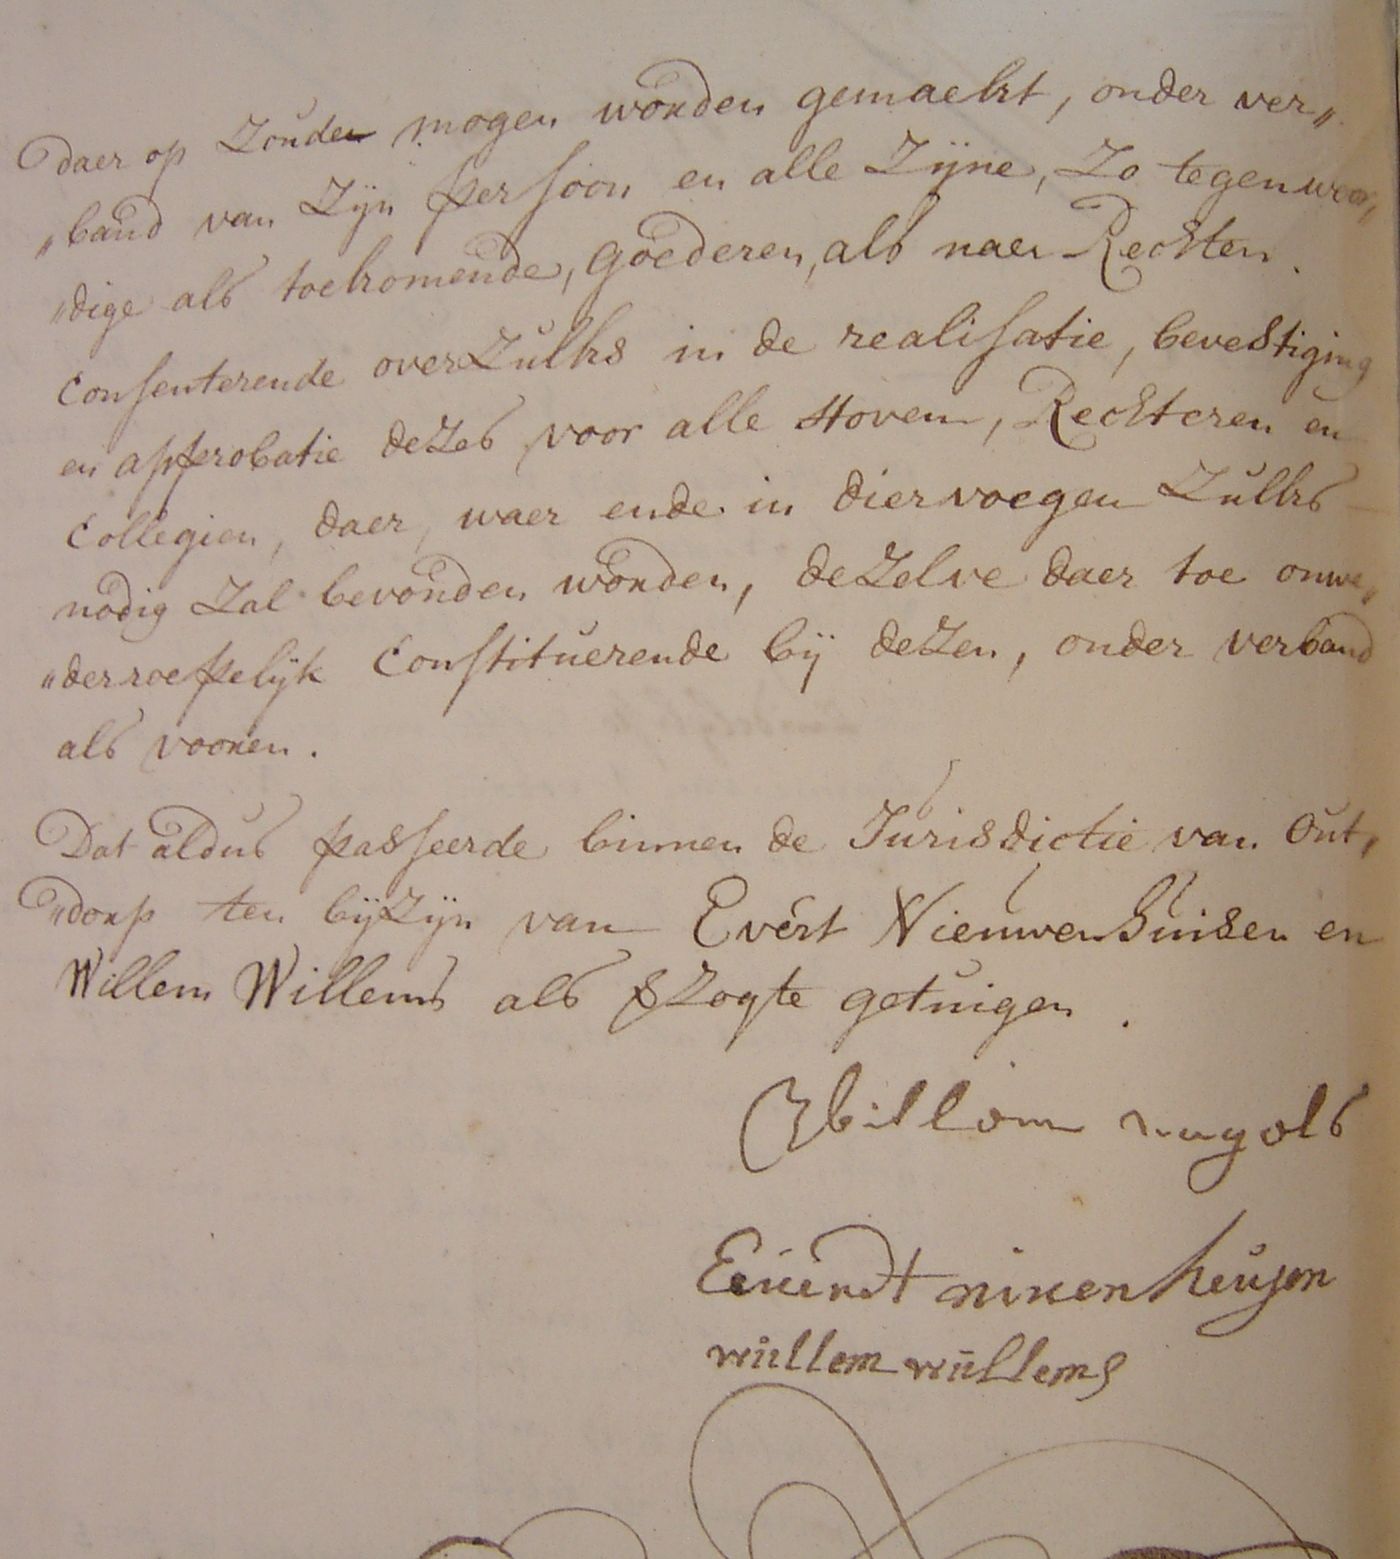 daer op Zouden mogen worden gemaekt, onder ver„
„band van Zijn persoon en alle Zijne, Zo tegenwoor„
„dige als toekomende, goederen, als naer Rechten.
Consenterende overZulks in de realisatie, bevestiging
en approbatie deZes voor alle Hoven, Rechteren en
Collegien, daer, waer ende in diervoegen Zulks
nodig Zal bevonden worden, deZelve daer toe onwe„
„derroepelijk Constituerende bij deZen, onder verband
als vooren.
Dat aldus passeerde binnen de Jurisdictie van Out„
„dorp ten bijZijn van Evert Nieuwenhuisen en
Willem Willems als Zogte getuigen.
Willem
Everdt niwenheusen
wullem wullems